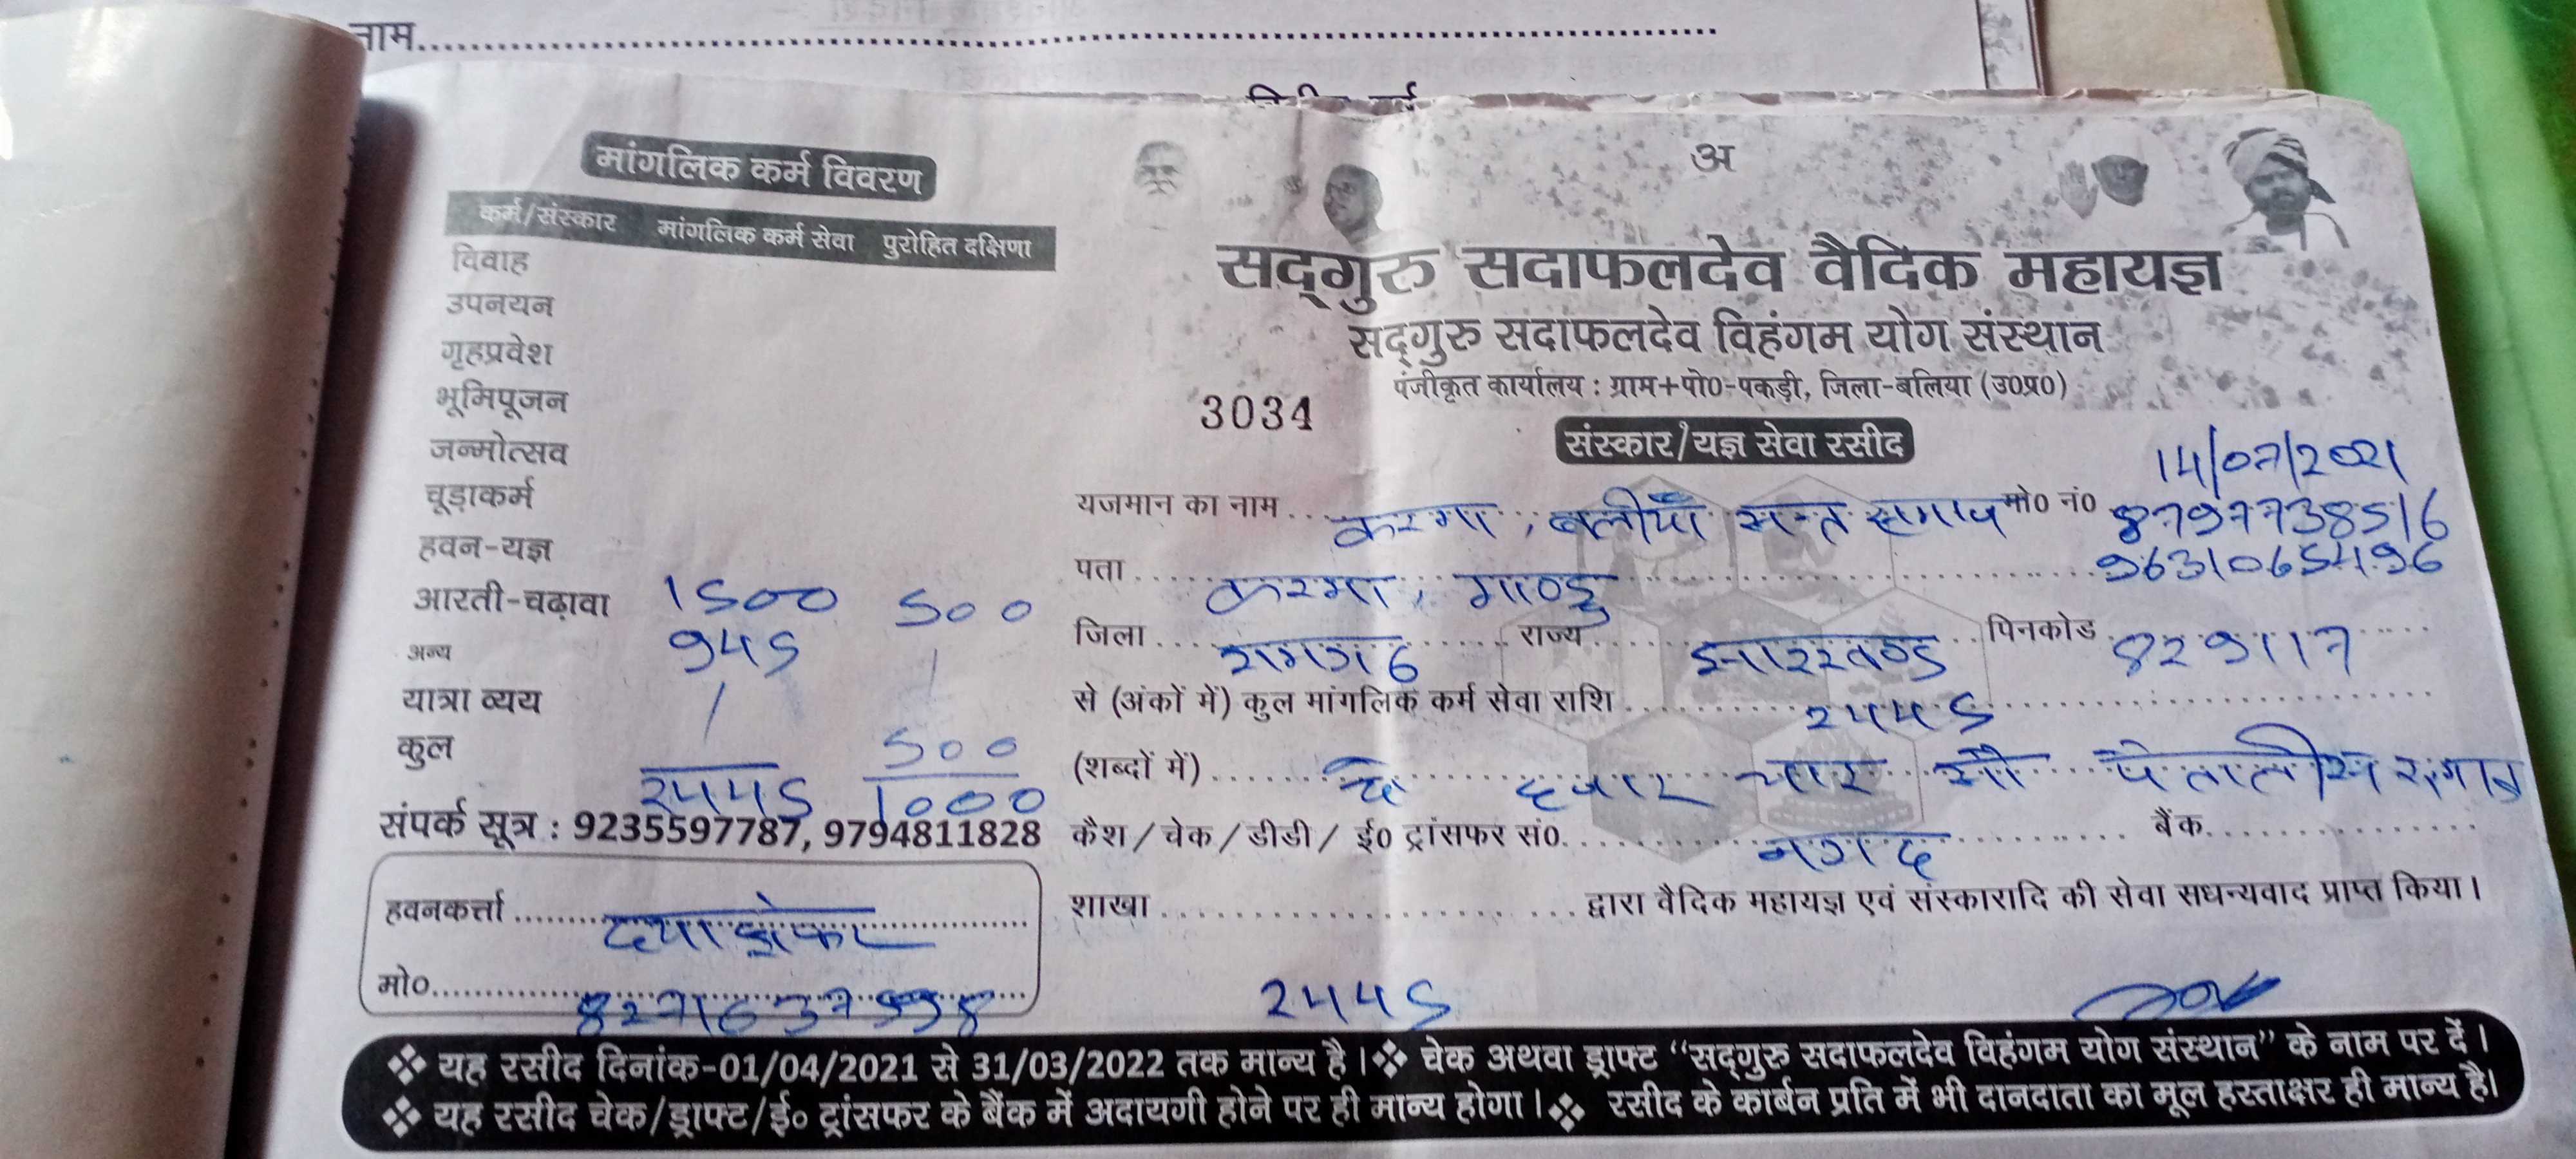 नाम
मांगलिक कर्म विवरण
कर्म/संस्कार मांगलिक कर्म सेवा पुरोहित दक्षिणा
विवाह
उपनयन
गृहप्रवेश
भूमिपूजन
जन्मोत्सव
चूड़ाकर्म
हवन-यज्ञ
आरती-चढ़ावा 1500 500
अन्य 945 /
यात्रा व्यय / 500
कुल 2445 1000
संपर्क सूत्र : 9235597787, 9794811828
हवनकर्त्ता
मो०
अ
सद्‌गुरु सदाफलदेव वैदिक महायज्ञ
सद्‌गुरु सदाफलदेव विहंगम योग संस्थान
पंजीकृत कार्यालय : ग्राम+पो0-पकड़ी, जिला-बलिया (उ0प्र0)
3034
संस्कार/यज्ञ सेवा रसीद
14/07/2021
यजमान का नाम करमा, सन्त समाज मो0 नं0 8797738516
9631065496
पता करमा, माण्डु
जिला रामगढ़ राज्य झारखण्ड पिनकोड 829117
से (अंकों में) कुल मांगलिक कर्म सेवा राशि 2445
(शब्दों में) दो हजार चार सौ पैतालीस
कैश / चेक / डीडी / ई0 ट्रांसफर सं0. नगद बैंक
शाखा द्वारा वैदिक महायज्ञ एवं संस्कारादि की सेवा सधन्यवाद प्राप्त किया।
2445
❖ यह रसीद दिनांक-01/04/2021 से 31/03/2022 तक मान्य है। ❖ चेक अथवा ड्राफ्ट “सद्‌गुरु सदाफलदेव विहंगम योग संस्थान” के नाम पर दें।
❖ यह रसीद चेक/ड्राफ्ट/ई० ट्रांसफर के बैंक में अदायगी होने पर ही मान्य होगा। ❖ रसीद के कार्बन प्रति में भी दानदाता का मूल हस्ताक्षर ही मान्य है।